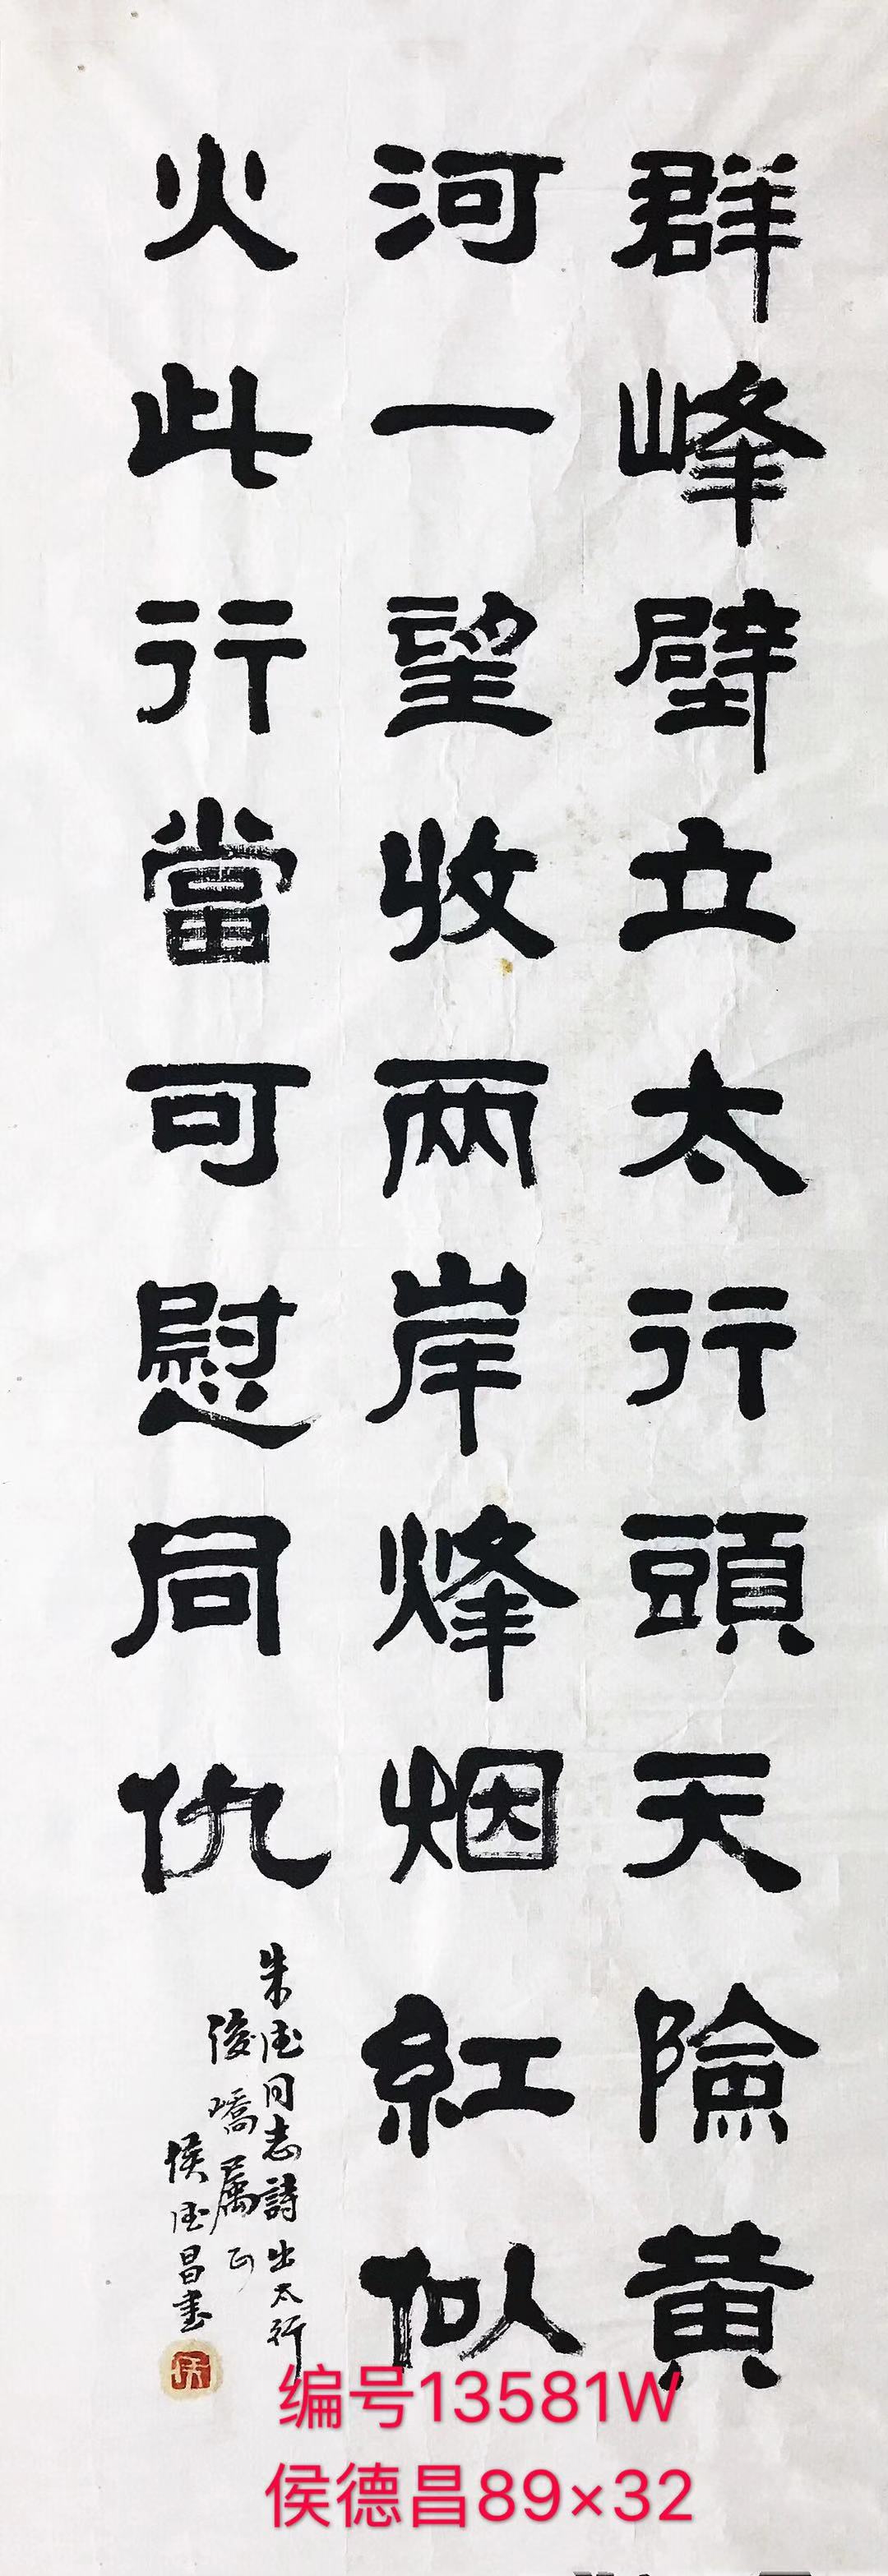 群峰壁立太行頭天險黄
河一望收两岸烽烟紅似
火此行當可慰同仇
朱德同志詩出太行
俊嶠属正
侯德昌書
编号13581W
侯德昌89×32